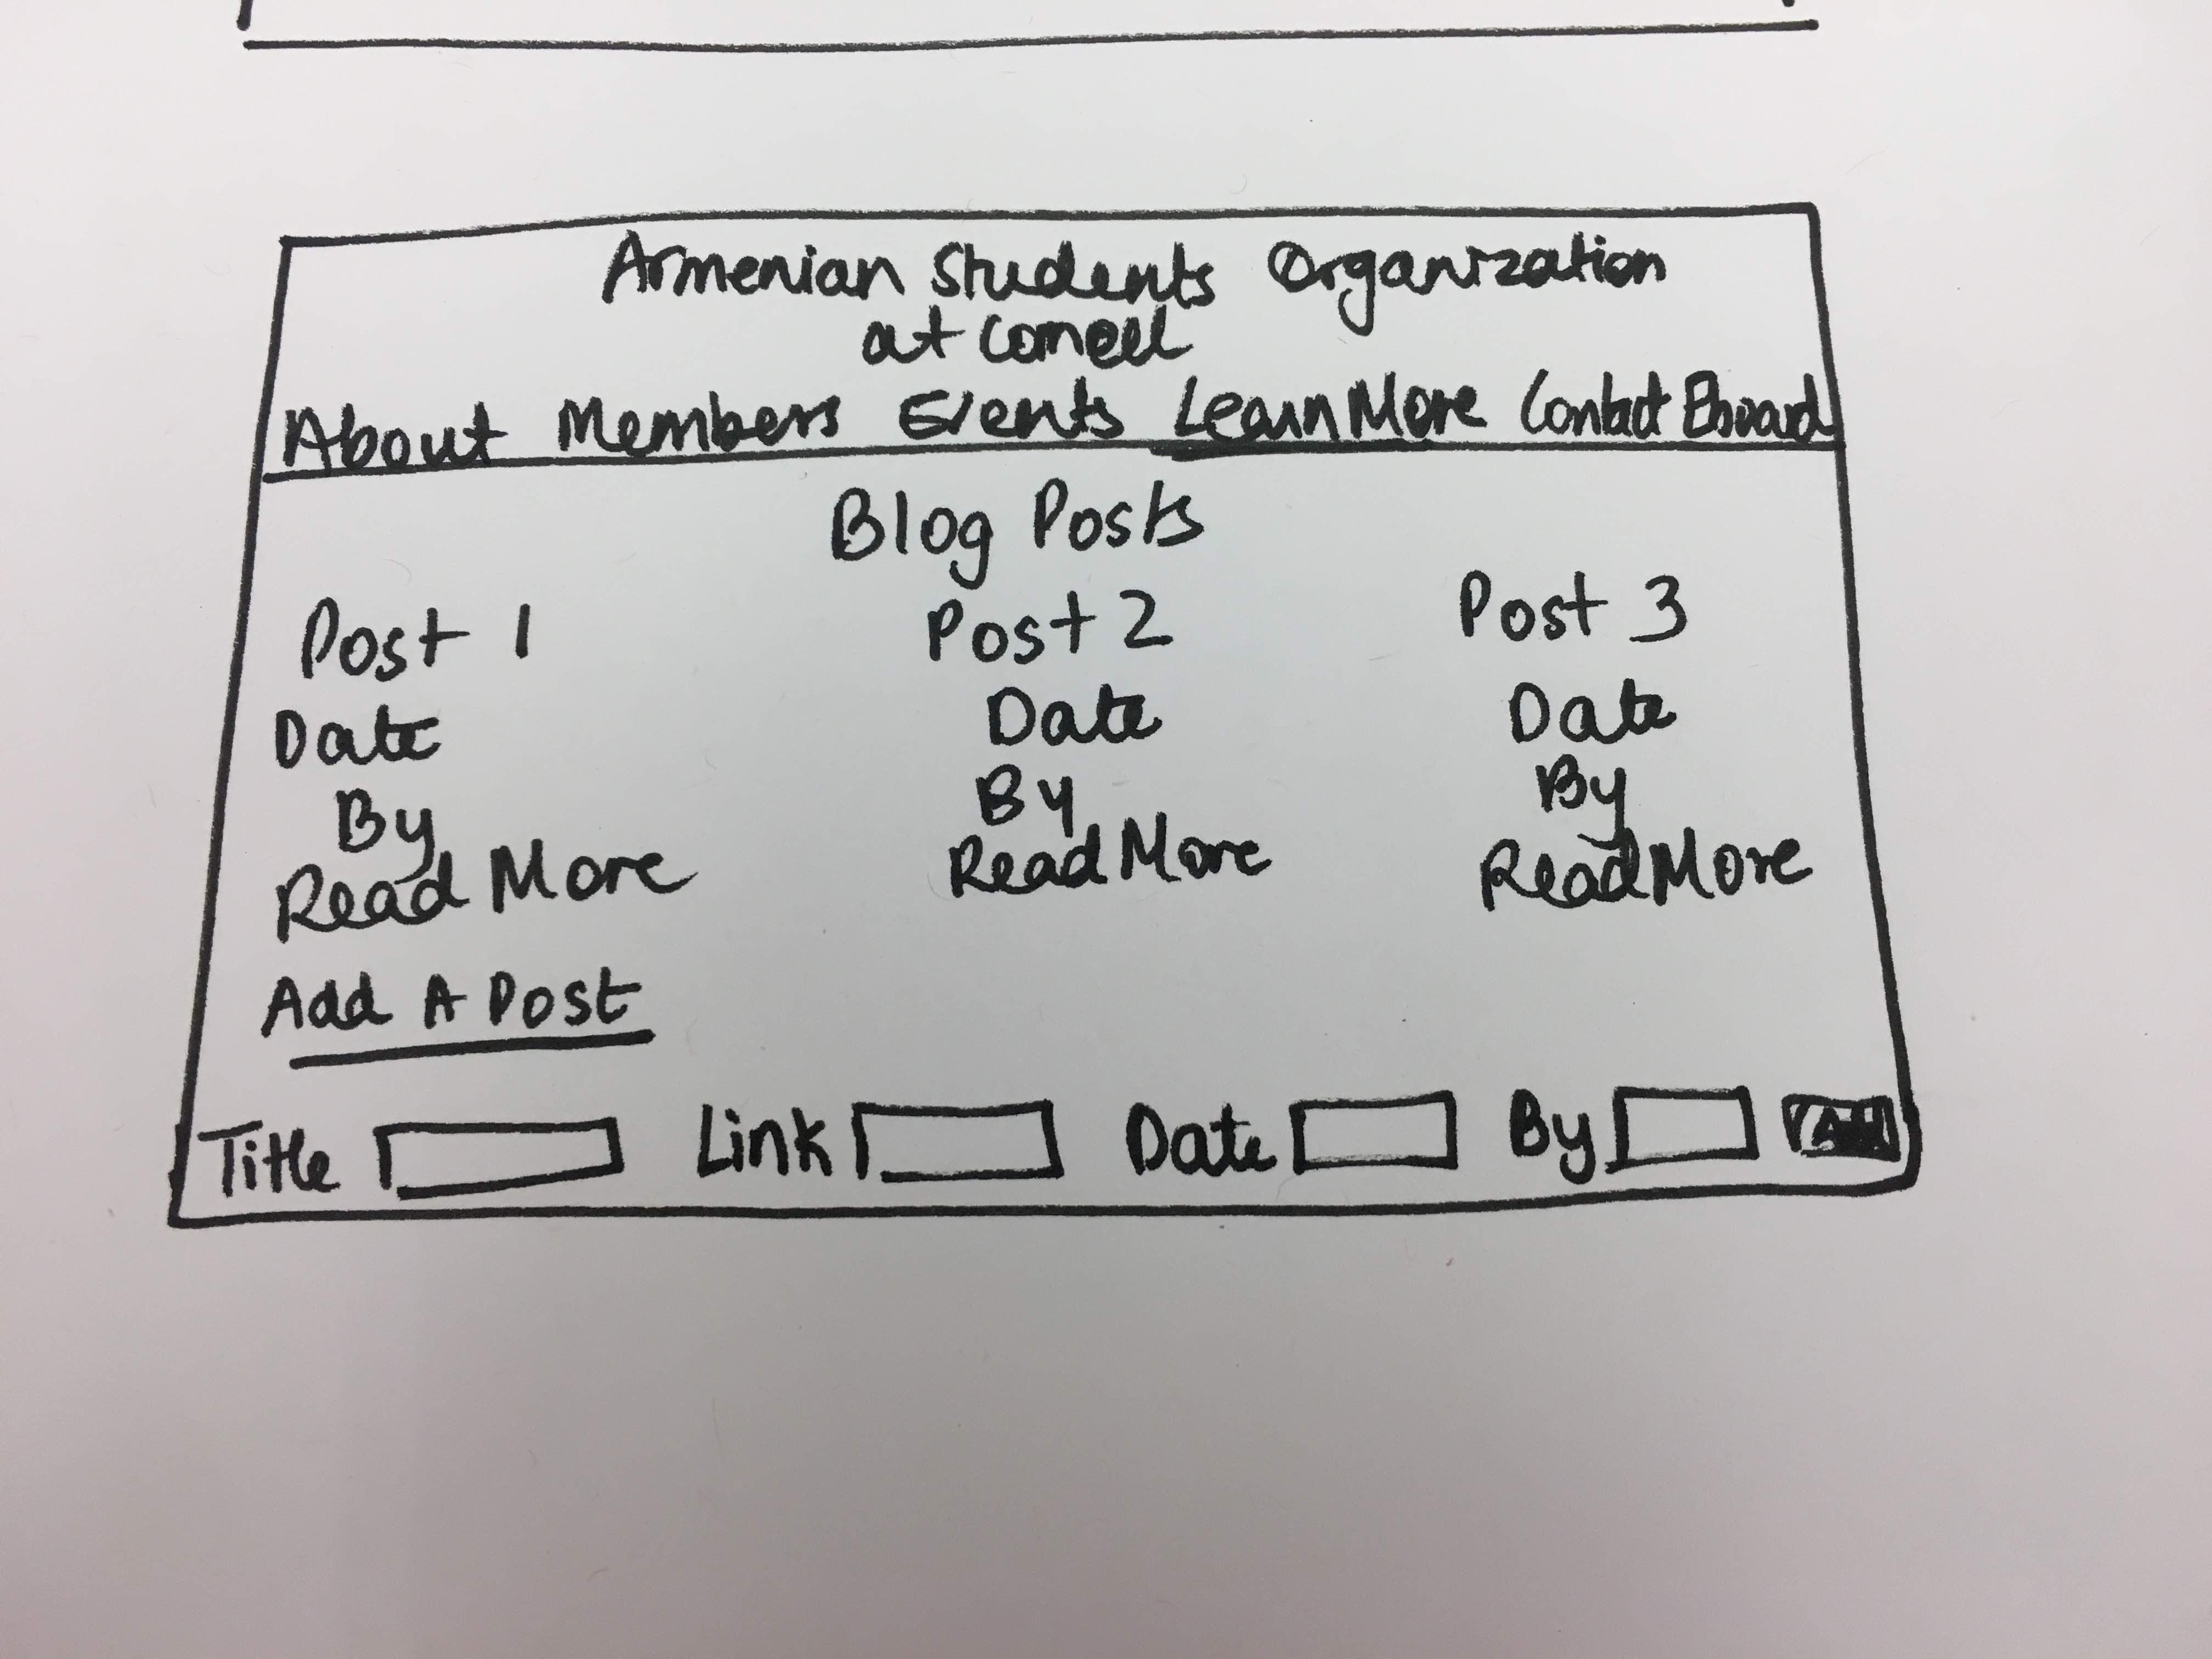 Armenian Students Organization
at Cornell
About Members Events Learn More Contact Eboard
Blog Posts
Post 1 Post 2 Post 3
Date Date Date
By By By
Read More Read More Read More
Add A Post
Title Link Date By